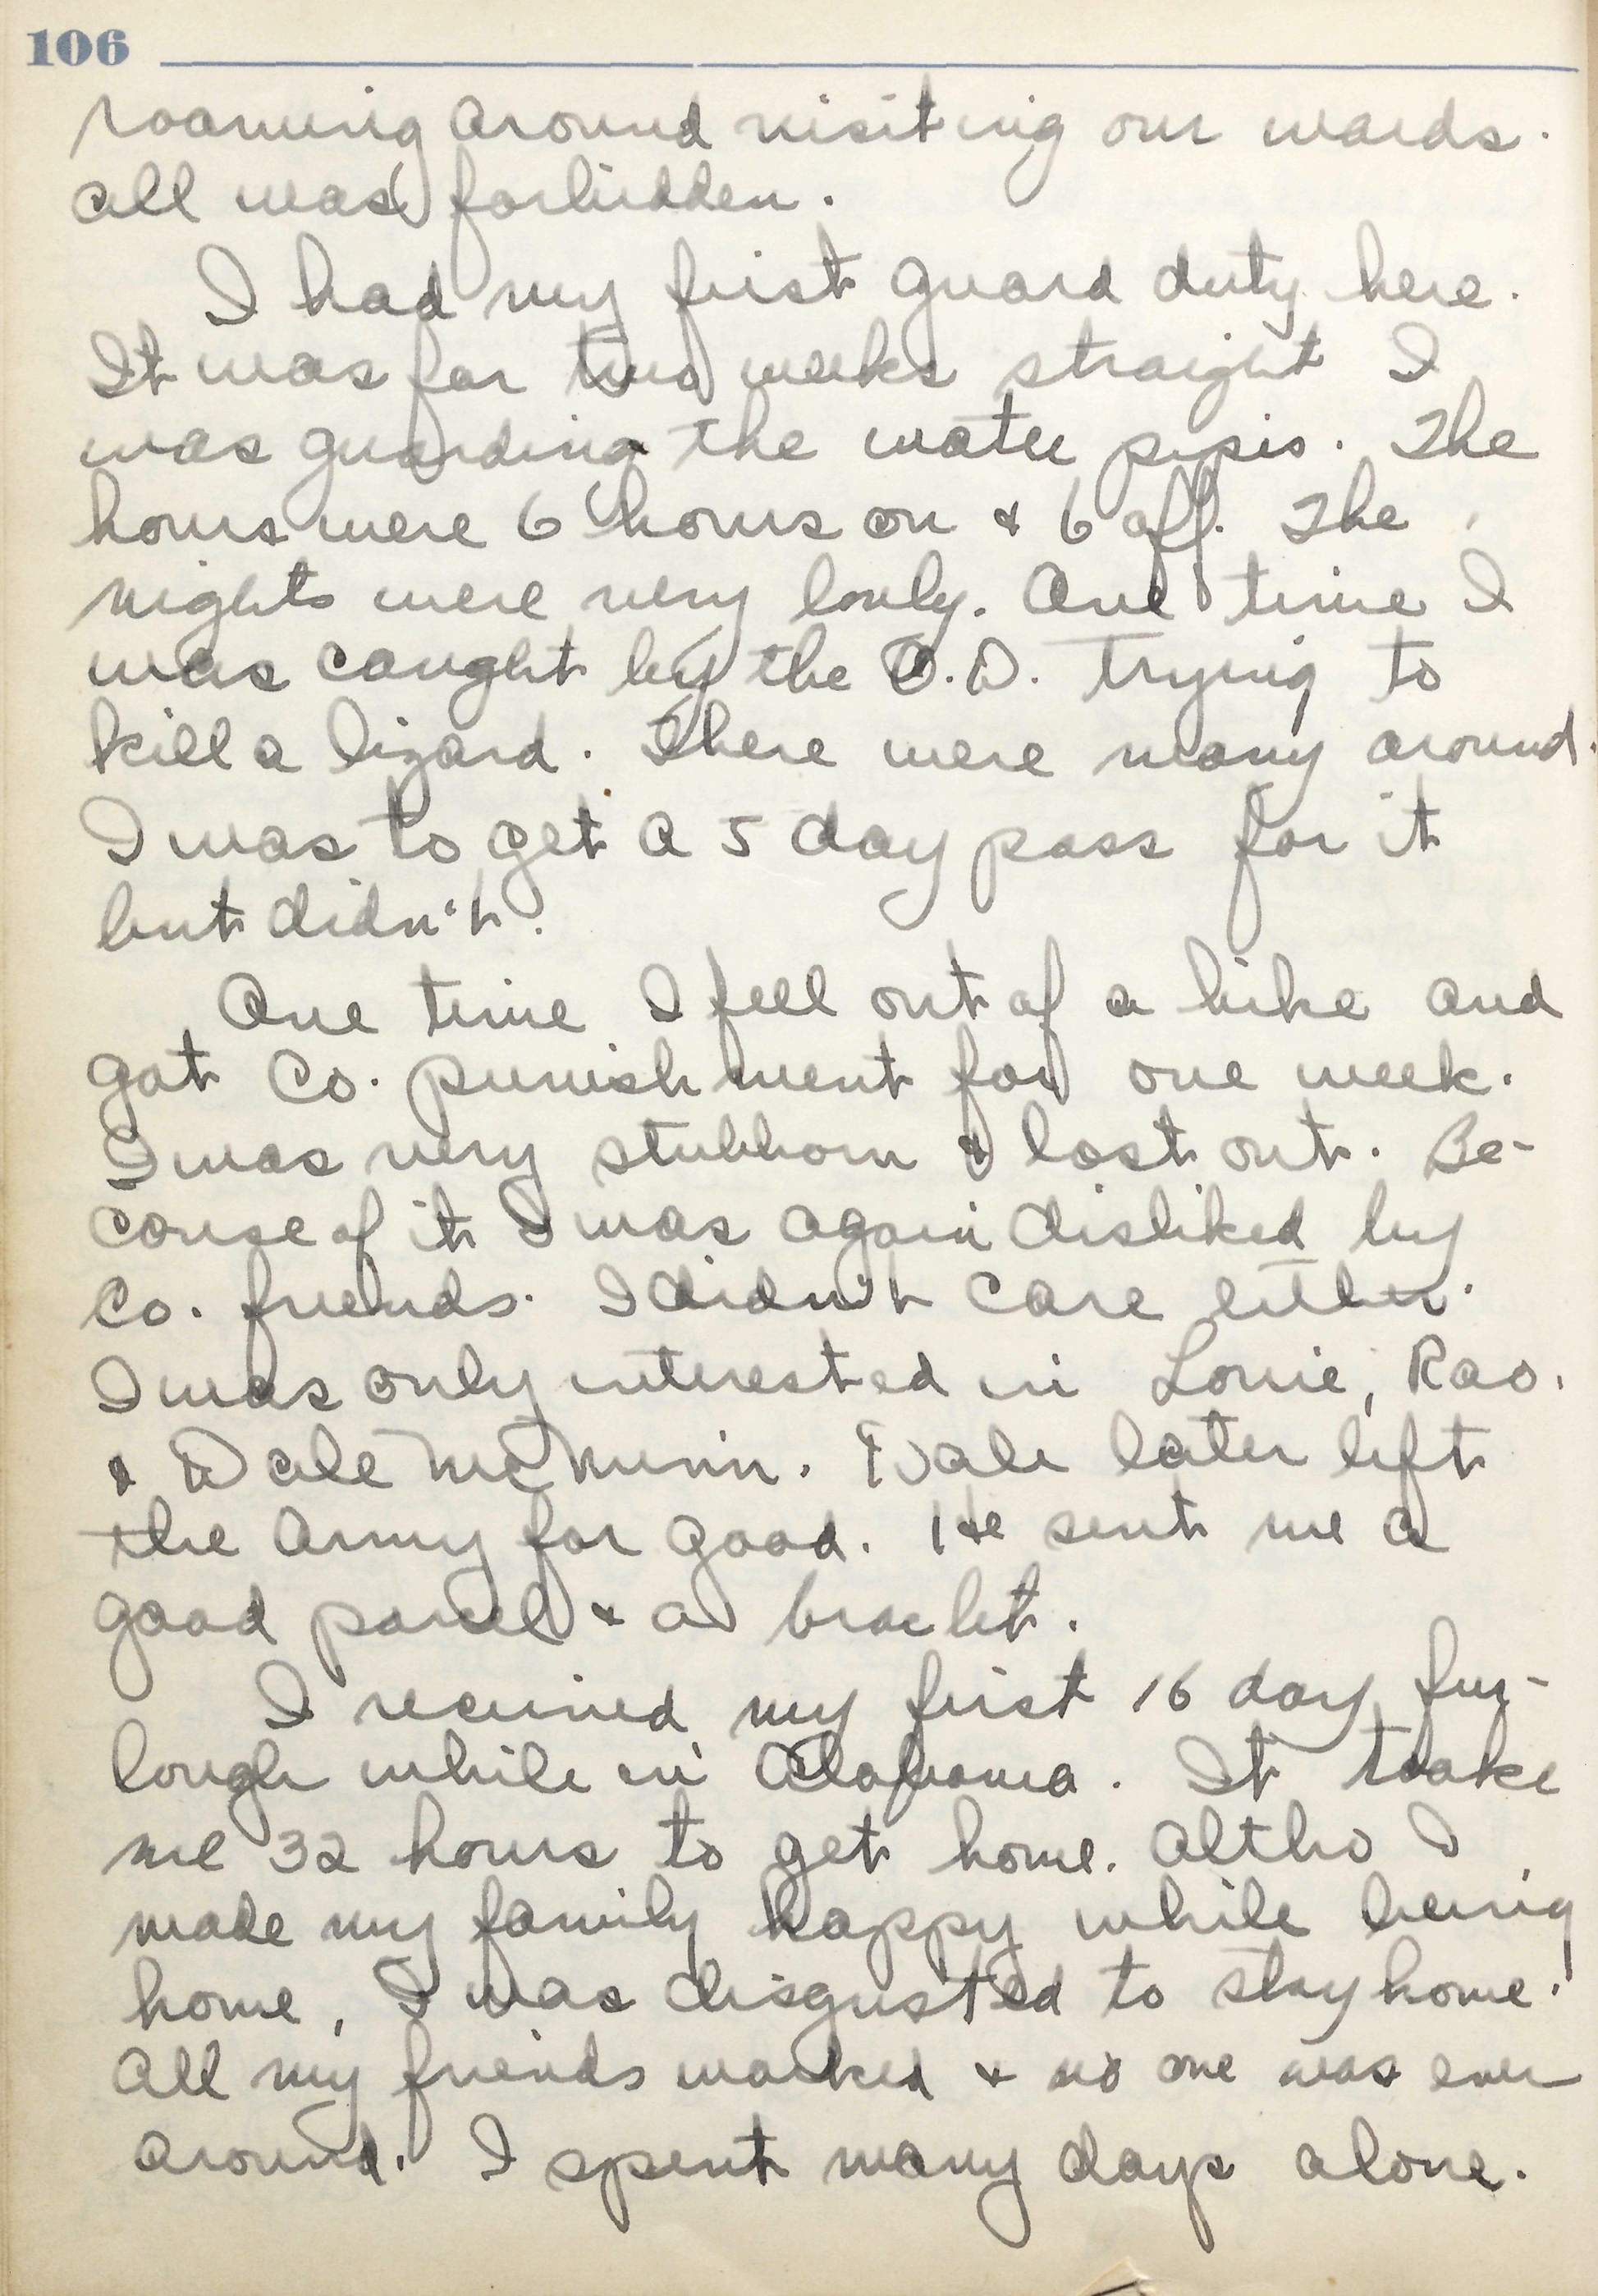 106
roaming around visiting our wards.
all was forbidden.
I had my first guard duty here.
It was for two weeks straight I
was guarding the water pipes. The
hours were 6 hours on & 6 off. The
nights were very lonly. One time I
was caught by the O.D. trying to
kill a lizard. There were many around.
I was to get a 5 day pass for it
but didn't.
One time I fell out of a hike and
got Co. punishment for one week.
I was very stubborn & lost out. Be-
couse of it I was again disliked by
Co. friends. I didn't care either.
I was only interested in Louie, Rao.
& Dale McMinin. Dale later left
the Army for good. He sent me a
good parcel & a braclet.
I received my first 16 day fur-
lough while in Alabama. It tooke
me 32 hours to get home. Altho I
made my family happy while being
home, I was disgusted to stay home.
All my friends worked & no one was ever
around. I spent many days alone.